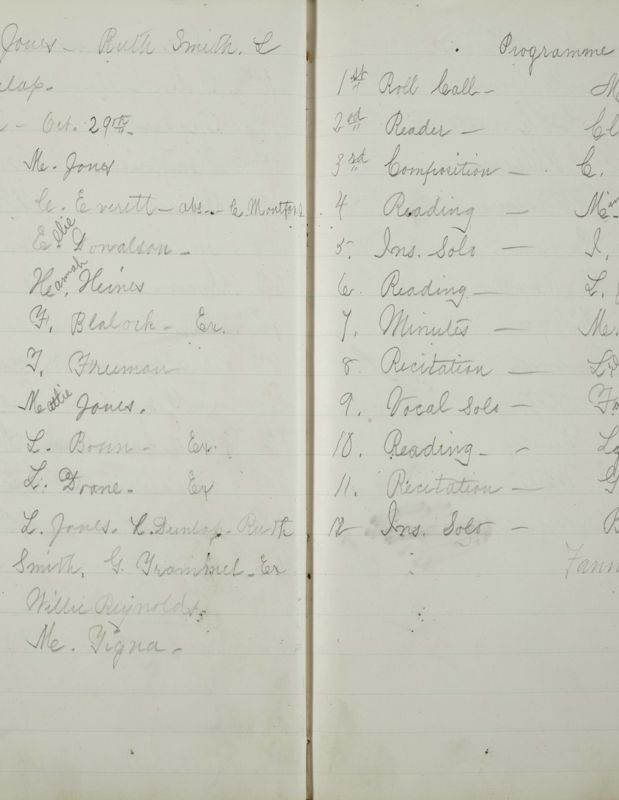 Jones - Ruth Smith. L
lap-
- Oct. 29th
M. Jones
C. Everett - abs - C Montfort
E. Donalson -
elbie
Hannah, Heines
F. Blalock - Ex.
T. Freeman
Mattie Jones.
L. Bonn - Ex.
L. Doane - Ex
L. Jones. L. Dunlap - Ruth
Smith, G. Trammel - Ex
Willie Reynolds
M. Tigna -
Programme
1st Roll Call - M
2ed Reader - Cl
3rd Composition - C.
4 Reading - M
5. Ins. Solo - I.
6. Reading - L.
7. Minutes - M.
8. Recitation - L
9. Vocal Solo - F
10. Reading - L
11. Recitation - G
12 Ins. Solo - B
Fann